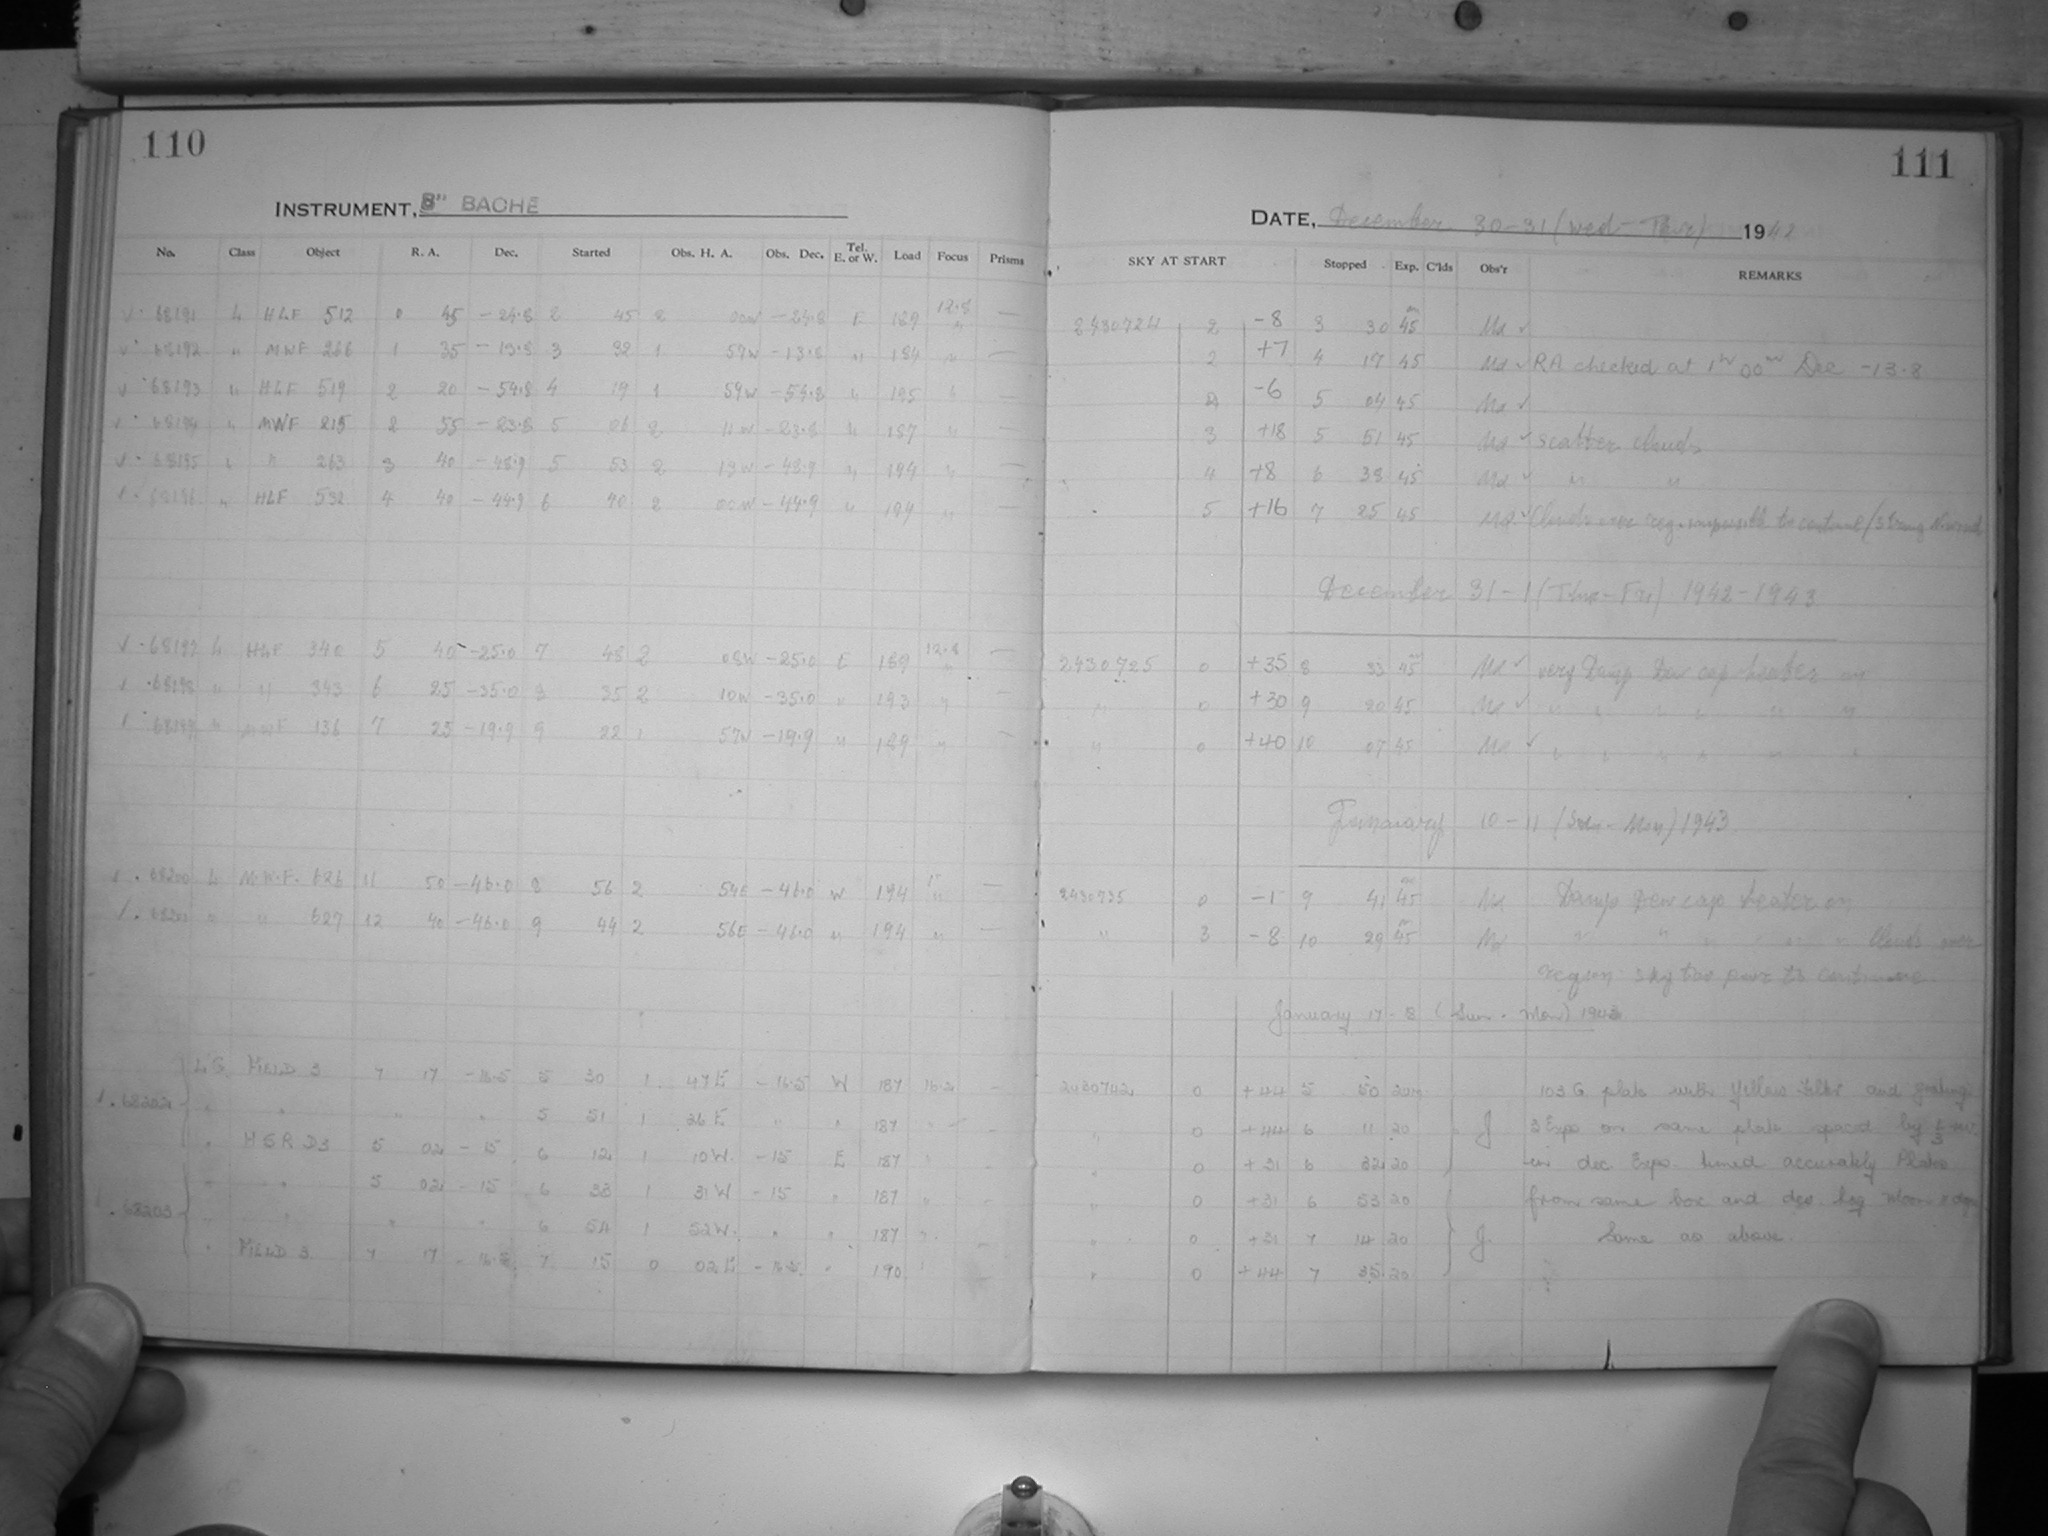 110
111
INSTRUMENT, 8" BACHE
DATE, December 30-31 (Wed-Thur) 1942
No. Class Object R. A. Dec. Started Obs. H. A. Obs. Dec. Tel. E. or W. Load Focus Prisms SKY AT START Stopped Exp. C'lds Obs'r REMARKS
68191 L HLF 512 0 45 -24.8 2 45 2 00W -24.8 E 189 12.8 — 2430724 2 -8 3 30 45 Md
68192 " MWF 266 1 35 -13.8 3 32 1 57W -13.8 " 184 " — 2 +7 4 17 45 Md RA checked at 1 00 Dec -13.8
68193 " HLF 519 2 20 -54.8 4 19 1 59W -54.8 " 195 " — 2 -6 5 04 45 Md
68194 " MWF 215 2 55 -23.8 5 06 2 11W -23.8 " 187 " — 3 +18 5 51 45 Md scatter clouds
68195 " " 263 3 40 -48.9 5 53 2 13W -48.9 " 194 " — 4 +8 6 38 45 Md " "
68196 " HLF 532 4 40 -44.9 6 40 2 00W -44.9 " 194 " — 5 +16 7 25 45 Md Clouds over reg. impossible to continue/Strong Wind
December 31-1 (Thur-Fri) 1942-1943
68197 L HLF 340 5 40 -25.0 7 48 2 08W -25.0 E 189 12.8 — 2430725 0 +35 8 33 45 Md very Damp Dew cap heater on
68198 " " 343 6 25 -35.0 8 35 2 10W -35.0 " 193 " — " 0 +30 9 20 45 Md " " " " " "
68199 " MWF 136 7 25 -19.9 9 22 1 57W -19.9 " 189 " — " 0 +40 10 07 45 Md " " " " " "
January 10-11 (Sun-Mon) 1943
68200 L M.W.F. 626 11 50 -46.0 8 56 2 54E -46.0 W 194 " — 2430735 0 -1 9 41 45 Md Damp Dew cap heater on
68201 " " 627 12 40 -46.0 9 44 2 56E -46.0 " 194 " — " 3 -8 10 29 45 Md " " " " " Clouds over
region sky too poor to continue
January 17-8 (Sun-Mon) 1943
LG Field 3 7 17 -16.5 5 30 1 47E -16.5 W 187 16.2 — 2430742 0 +44 5 50 20m 103G plate with Yellow Filter and grating
68202 " " " " 5 51 1 26E " " 187 " — " 0 +44 6 11 20 J 3 Expo on same plate spaced by
" HSRD3 5 02 -15 6 12 1 10W -15 E 187 " " 0 +31 6 32 20 in dec. Expo timed accurately Plates
" " " 5 02 -15 6 33 1 31W -15 " 187 " - " 0 +31 6 53 20 from same box and dev.
68203 " " " " 6 54 1 52W " " 187 " - " 0 +31 7 14 20 J Same as above.
" Field 3 7 17 -16.5 7 15 0 02E -16.5 " 190 " - " 0 +44 7 35 20